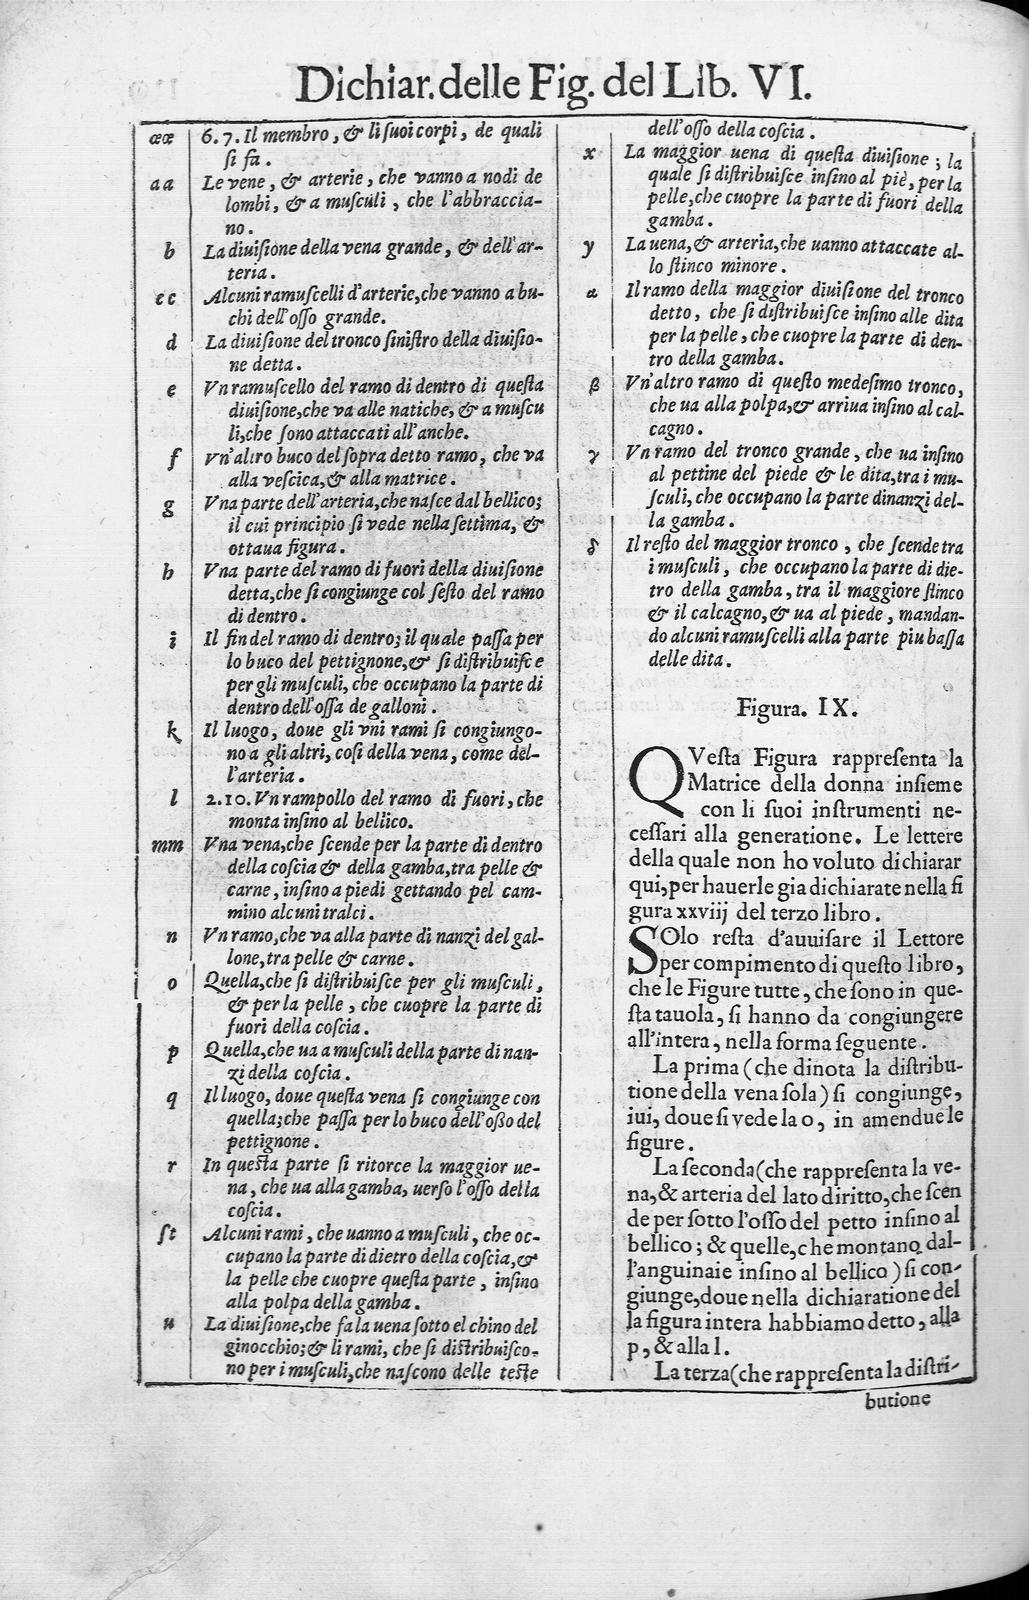 Dichiar. delle Fig. del Lib. VI.
œœ 6.7. Il membro, & li suoi corpi, de quali
si fa.
aa Le vene, & arterie, che vanno a nodi de
lombi, & a musculi, che l'abbraccia-
no.
b La diuisione della vena grande, & dell'ar-
teria.
cc Alcuni ramuscelli d'arterie, che vanno a bu-
chi dell'osso grande.
d La diuisione del tronco sinistro della diuisio-
ne detta.
e Vn ramuscello del ramo di dentro di questa
diuisione, che va alle natiche, & a muscu
li, che sono attaccati all'anche.
f Vn'altro buco del sopra detto ramo, che va
alla vescica, & alla matrice.
g Vna parte dell'arteria, che nasce dal bellico;
il cui principio si vede nella settima, &
ottaua figura.
h Vna parte del ramo di fuori della diuisione
detta, che si congiunge col sesto del ramo
di dentro.
i Il fin del ramo di dentro; il quale passa per
lo buco del pettignone, & si distribuisce
per gli musculi, che occupano la parte di
dentro dell'ossa de galloni.
k Il luogo, doue gli vni rami si congiungo-
no a gli altri, cosi della vena, come del-
l'arteria.
l 2.10. Vn rampollo del ramo di fuori, che
monta insino al bellico.
mm Vna vena, che scende per la parte di dentro
della coscia & della gamba, tra pelle &
carne, insino a piedi gettando pel cam-
mino alcuni tralci.
n Vn ramo, che va alla parte di nanzi del gal-
lone, tra pelle & carne.
o Quella, che si distribuisce per gli musculi,
& per la pelle, che cuopre la parte di
fuori della coscia.
p Quella, che ua a musculi della parte di nan-
zi della coscia.
q Il luogo, doue questa vena si congiunge con
quella; che passa per lo buco dell'osso del
pettignone.
r In questa parte si ritorce la maggior ue-
na, che ua alla gamba, uerso l'osso della
coscia.
st Alcuni rami, che uanno a musculi, che oc-
cupano la parte di dietro della coscia, &
la pelle che cuopre questa parte, insino
alla polpa della gamba.
u La diuisione, che fa la uena sotto el chino del
ginocchio; & li rami, che si distribuisco-
no per i musculi, che nascono delle teste
dell'osso della coscia.
x La maggior uena di questa diuisione; la
quale si distribuisce insino al piè, per la
pelle, che cuopre la parte di fuori della
gamba.
y La uena, & arteria, che uanno attaccate al-
lo stinco minore.
α Il ramo della maggior diuisione del tronco
detto, che si distribuisce insino alle dita
per la pelle, che cuopre la parte di den-
tro della gamba.
β Vn'altro ramo di questo medesimo tronco,
che ua alla polpa, & arriua insino al cal-
cagno.
γ Vn ramo del tronco grande, che ua insino
al pettine del piede & le dita, tra i mu-
sculi, che occupano la parte dinanzi del-
la gamba.
δ Il resto del maggior tronco, che scende tra
i musculi, che occupano la parte di die-
tro della gamba, tra il maggiore stinco
& il calcagno, & ua al piede, mandan-
do alcuni ramuscelli alla parte piu bassa
delle dita.
Figura. IX.
QVesta Figura rappresenta la
Matrice della donna insieme
con li suoi instrumenti ne-
cessari alla generatione. Le lettere
della quale non ho voluto dichiarar
qui, per hauerle gia dichiarate nella fi
gura xxviij del terzo libro.
SOlo resta d'auuisare il Lettore
per compimento di questo libro,
che le Figure tutte, che sono in que-
sta tauola, si hanno da congiungere
all'intera, nella forma seguente.
La prima (che dinota la distribu-
tione della vena sola) si congiunge,
iui, doue si vede la o, in amendue le
figure.
La seconda (che rappresenta la ve-
na, & arteria del lato diritto, che scen
de per sotto l'osso del petto insino al
bellico; & quelle, che montano dal-
l'anguinaie insino al bellico) si con-
giunge, doue nella dichiaratione del
la figura intera habbiamo detto, alla
p, & alla l.
La terza (che rappresenta la distri-
butione